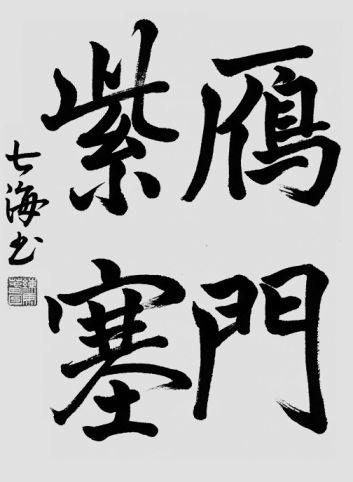 鴈門
紫塞
七海书